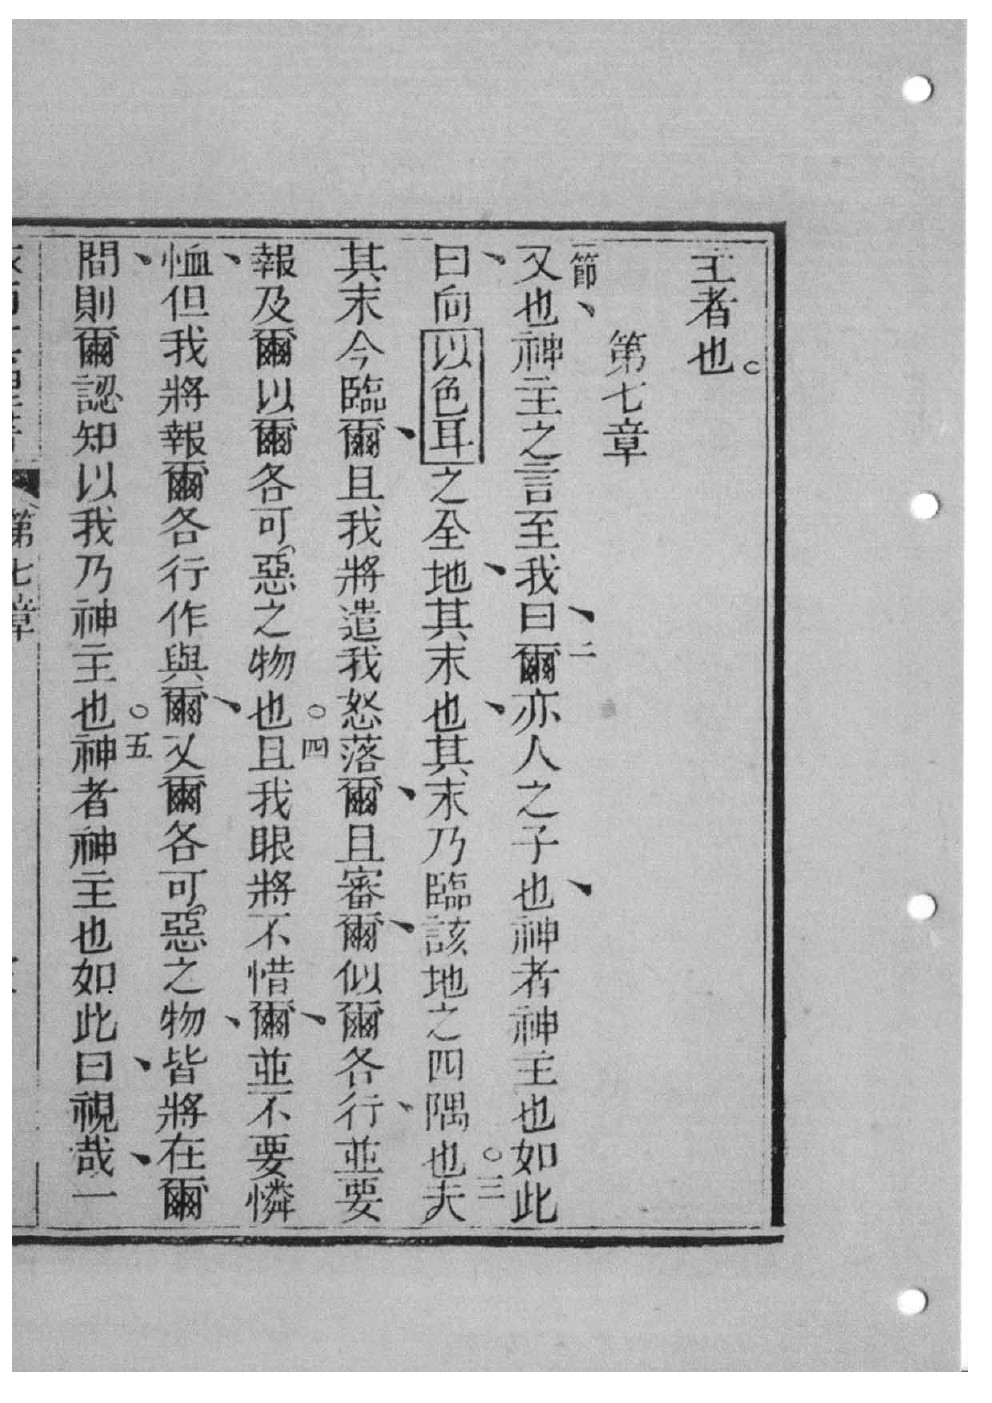 主者也。
第七章
節、又也神主之言至我曰、二爾亦人之子也、神者神主也如此
曰、向以色耳之全地、其末也、其末乃臨該地之四隅也。三夫
其末今臨爾、且我將遣我怒落爾、且審爾、似爾各行、並要
報及爾以爾各可惡之物也。四且我眼將不惜爾、並不要憐
恤、但我將報爾各行作與爾、又爾各可惡之物、皆將在爾
間、則爾認知以我乃神主也。五神者神主也如此曰、視哉、一
第七章